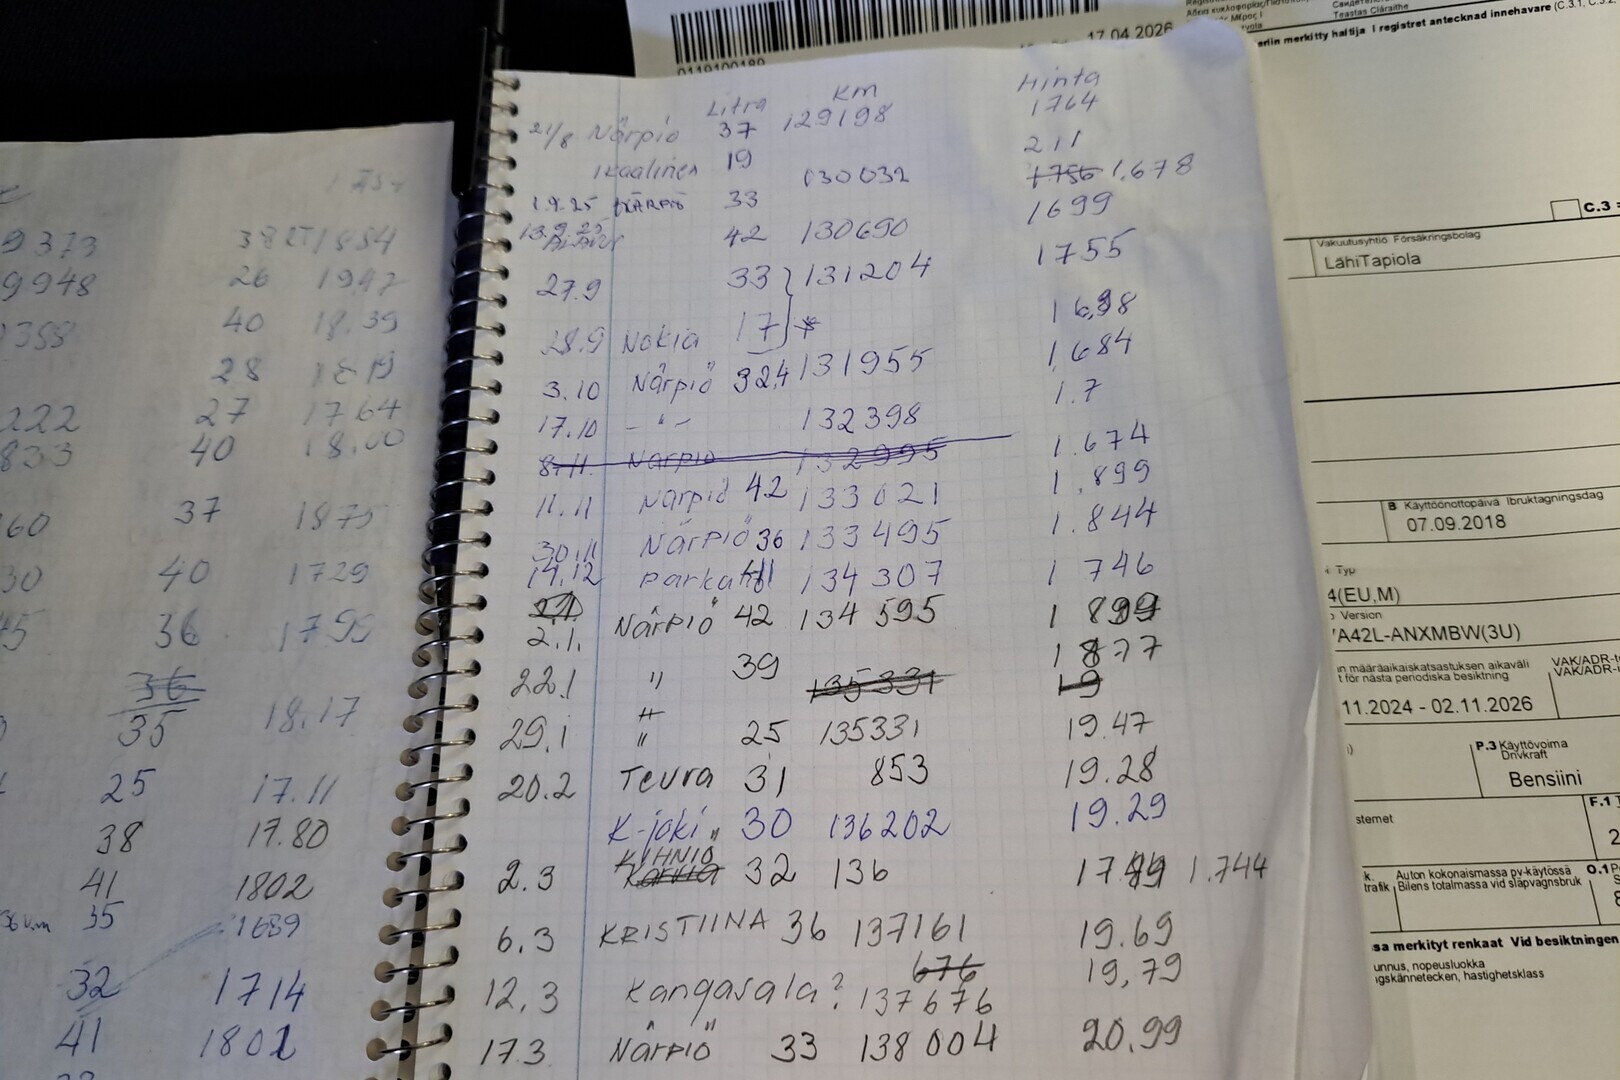 17.04.2026
0119100189
Teastas Cláraithe
eriin merkitty haltija I registret antecknad innehavare (C.3.1, C.3.2,
Litra Km Hinta
21/8 Närpiö 37 129198 1764
Ikaalinen 19 211
130032 1756 1.678
1.9.25 NÄRPIÖ 33 1699
13.9.25 42 130690
27.9 33 131204 1755
28.9 Nokia 17 * 1698
3.10 Närpiö 32,4 131955 1.684
17.10 -"- 132398 1.7
8.11. Närpiö 132995
11.11 Närpiö 42 133021 1.674
30.11 Närpiö 36 133495 1.899
14.12 Parkano 41 134307 1.844
2.1. Närpiö 42 134595 1 746
22.1 " 39 135331 1 899
1877
19
29.1 " 25 135331 19.47
20.2 Teuva 31 853 19.28
K-joki " 30 136202 19.29
KIHNIÖ
2.3 Karvia 32 136 1.744
6.3 KRISTIINA 36 137161 19.69
676
12.3 Kangasala? 137676 19,79
17.3. Närpiö 33 138004 20.99
9373 38 1884
9948 26 1947
40 18.39
28 1819
222 27 1764
833 40 18.00
60 37 1875
30 40 1729
45 36 1795
36
35 18.17
25 17.11
38 17.80
41 1802
35 1689
32 1714
41 1802
C.3
Vakuutusyhtiö Försäkringsbolag
LähiTapiola
B Käyttöönottopäivä Ibruktagningsdag
07.09.2018
Typ
4(EU,M)
Version
A42L-ANXMBW(3U)
n määräaikaiskatsastuksen aikaväli
t för nästa periodiska besiktning
VAK/ADR-
VAK/ADR-
11.2024 - 02.11.2026
P.3 Käyttövoima
Drivkraft
Bensiini
F.1
stemet
Auton kokonaismassa pv-käytössä
Bilens totalmassa vid släpvagnsbruk
O.1
sa merkityt renkaat Vid besiktningen
unnus, nopeusluokka
gskännetecken, hastighetsklass